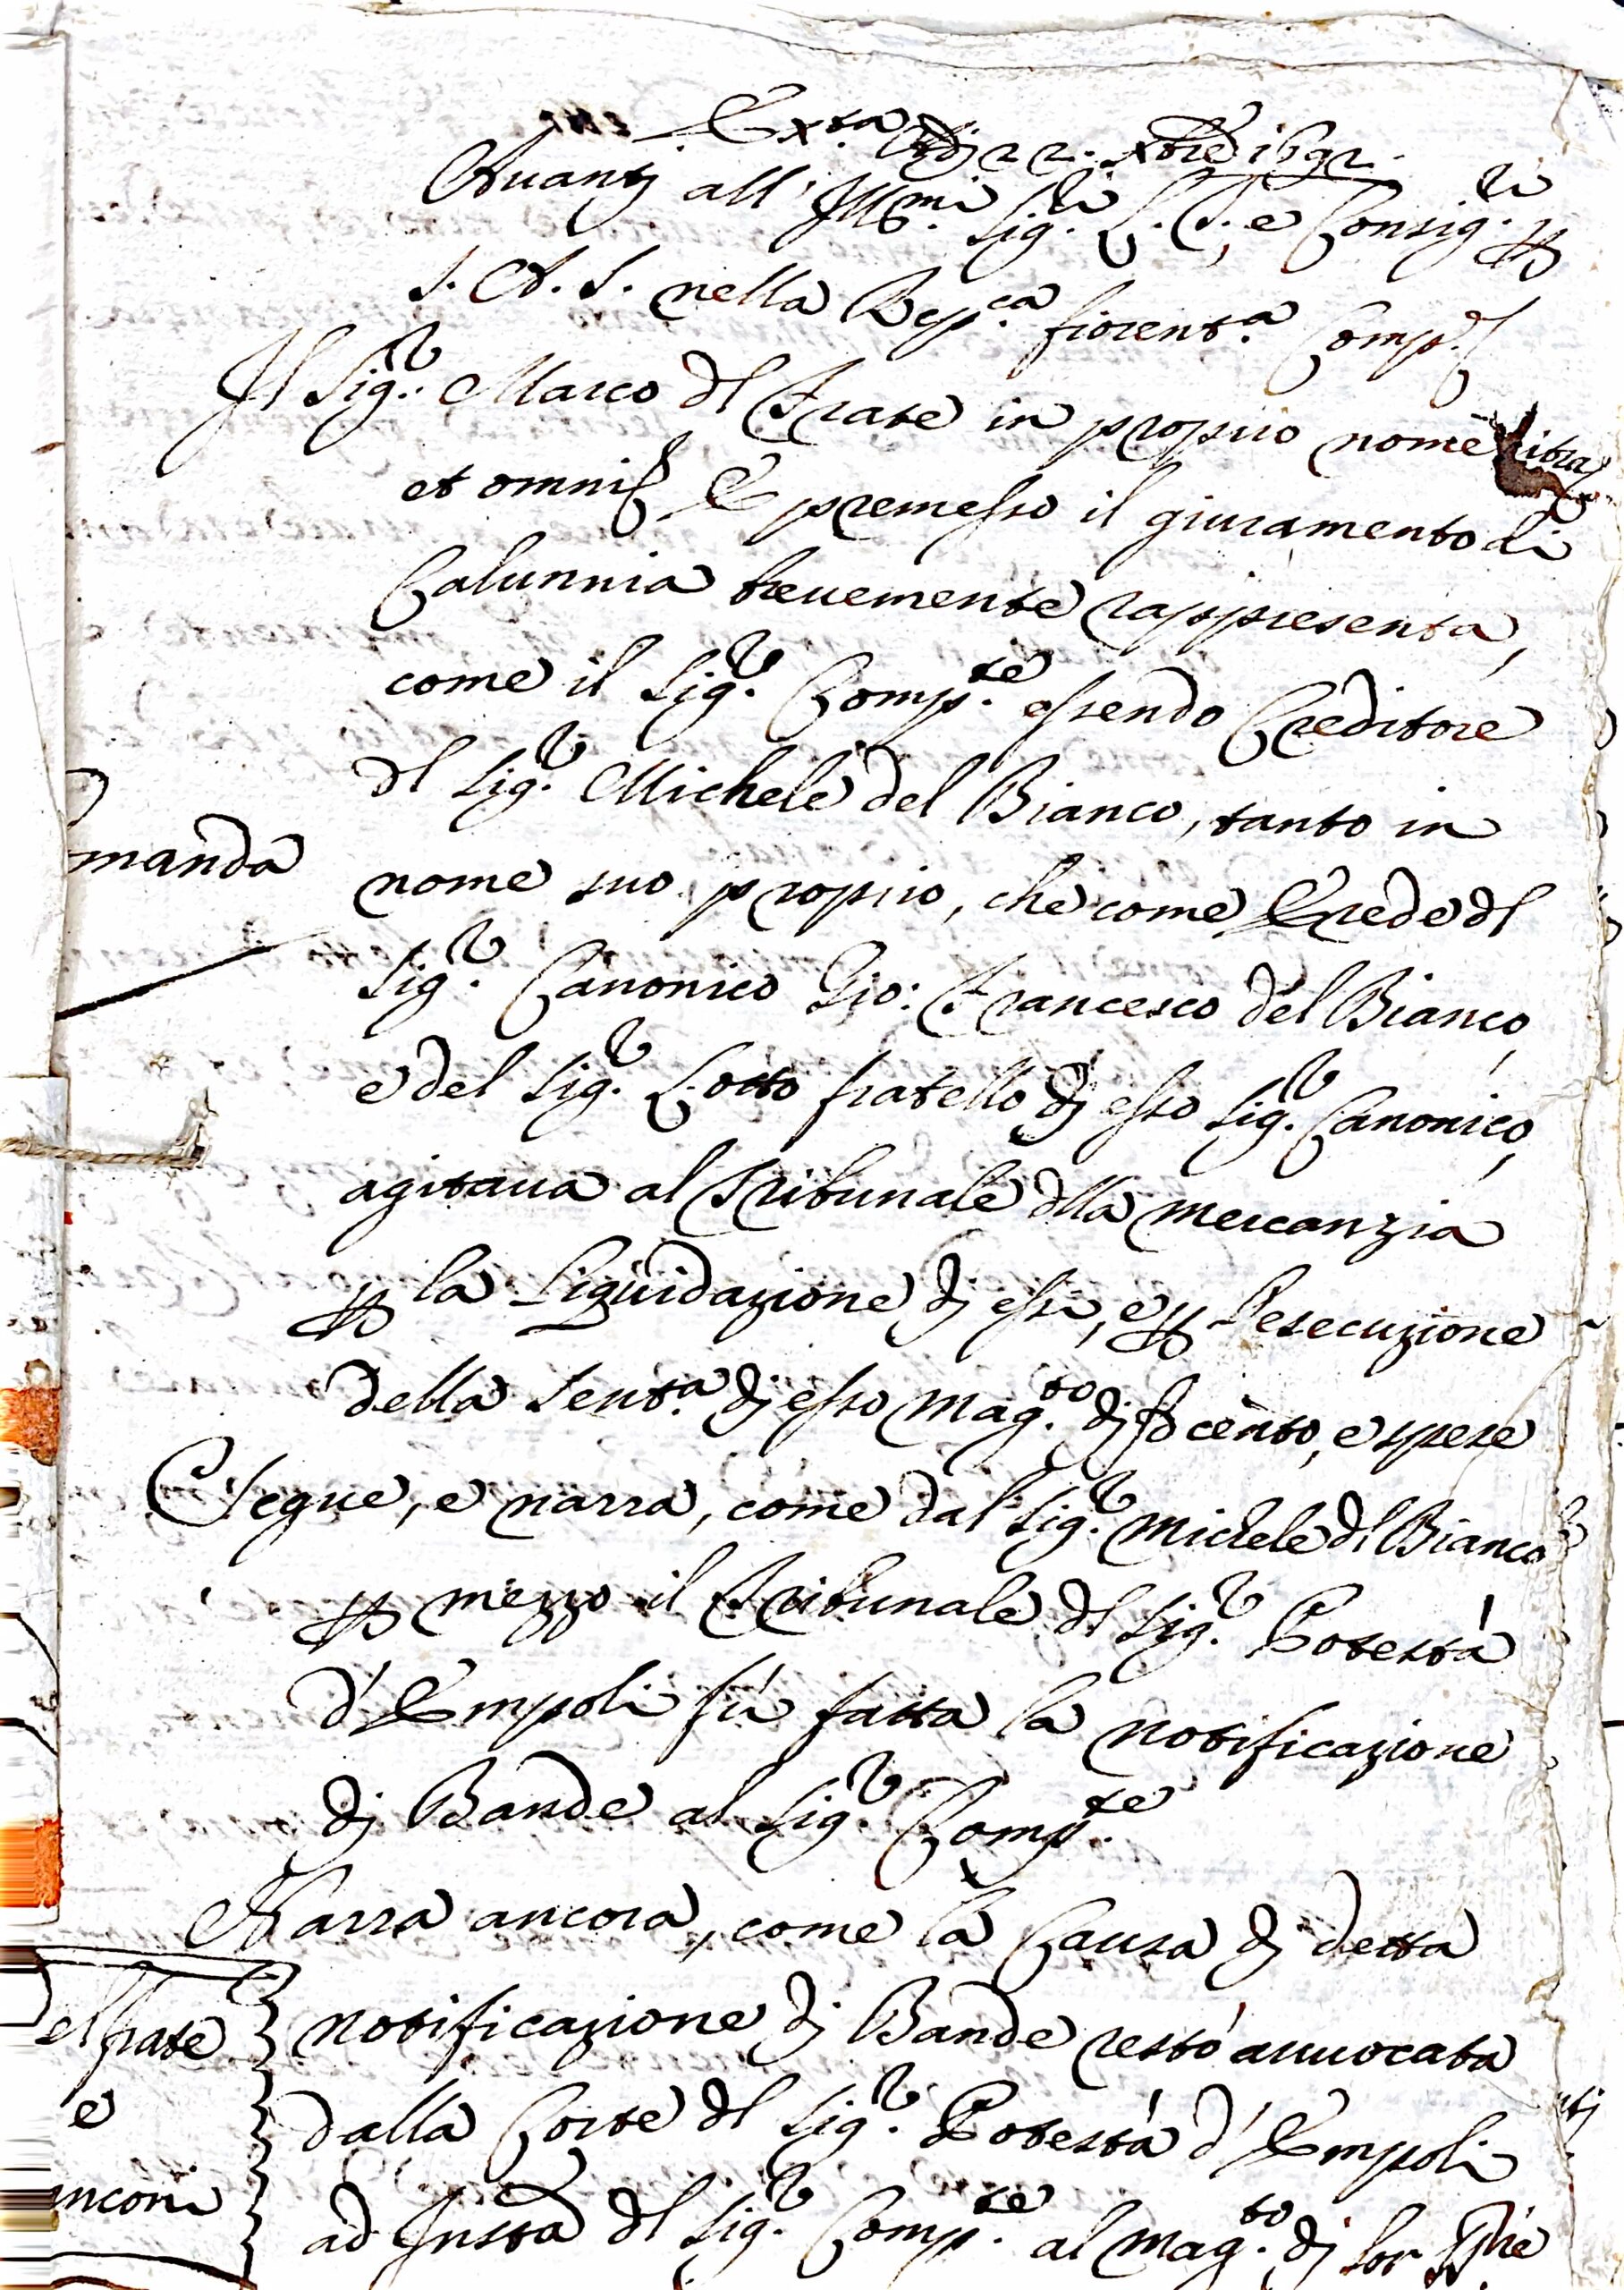 Ex.ta Adj 22. Xbre 1692.
Auantj all' Ill.mi Sig.ri L. T., e Consig.ri p
S. A. S. nella Rep.ca fiorent.a Comp.
Il Sig.r Marco dl Frate in proprio nome
et omnis & premesso il giuramento di
Calunnia breuemente rappresenta,
come il Sig.r Comp.te essendo Creditore
dl Sig.r Michele del Bianco, tanto in
manda
nome suo proprio, che come Erede dl
Sig.r Canonico Gio: Francesco del Bianco,
e del Sig.r Lotto fratello dj esso Sig.r Canonico,
agitaua al Tribunale dlla Mercanzia
p la Liquidazione dj essi, e p l'esecuzione
della Sent.a dj esso Mag.to dj cento, e spese
Segue, e narra, come dal Sig.r Michele dl Bianco
p mezzo il Tribunale dl Sig.r Potestà
d'Empoli fù fatta la notificazione
dj Bande al Sig.r Comp.te
Narra ancora, come la Causa dj detta
notificazione dj Bande restò auuocata
el frate
dalla Corte dl Sig.r Potestà d'Empoli
e
ad Insta dl Sig.r Comp.te al Mag.to dj Sor
anconi